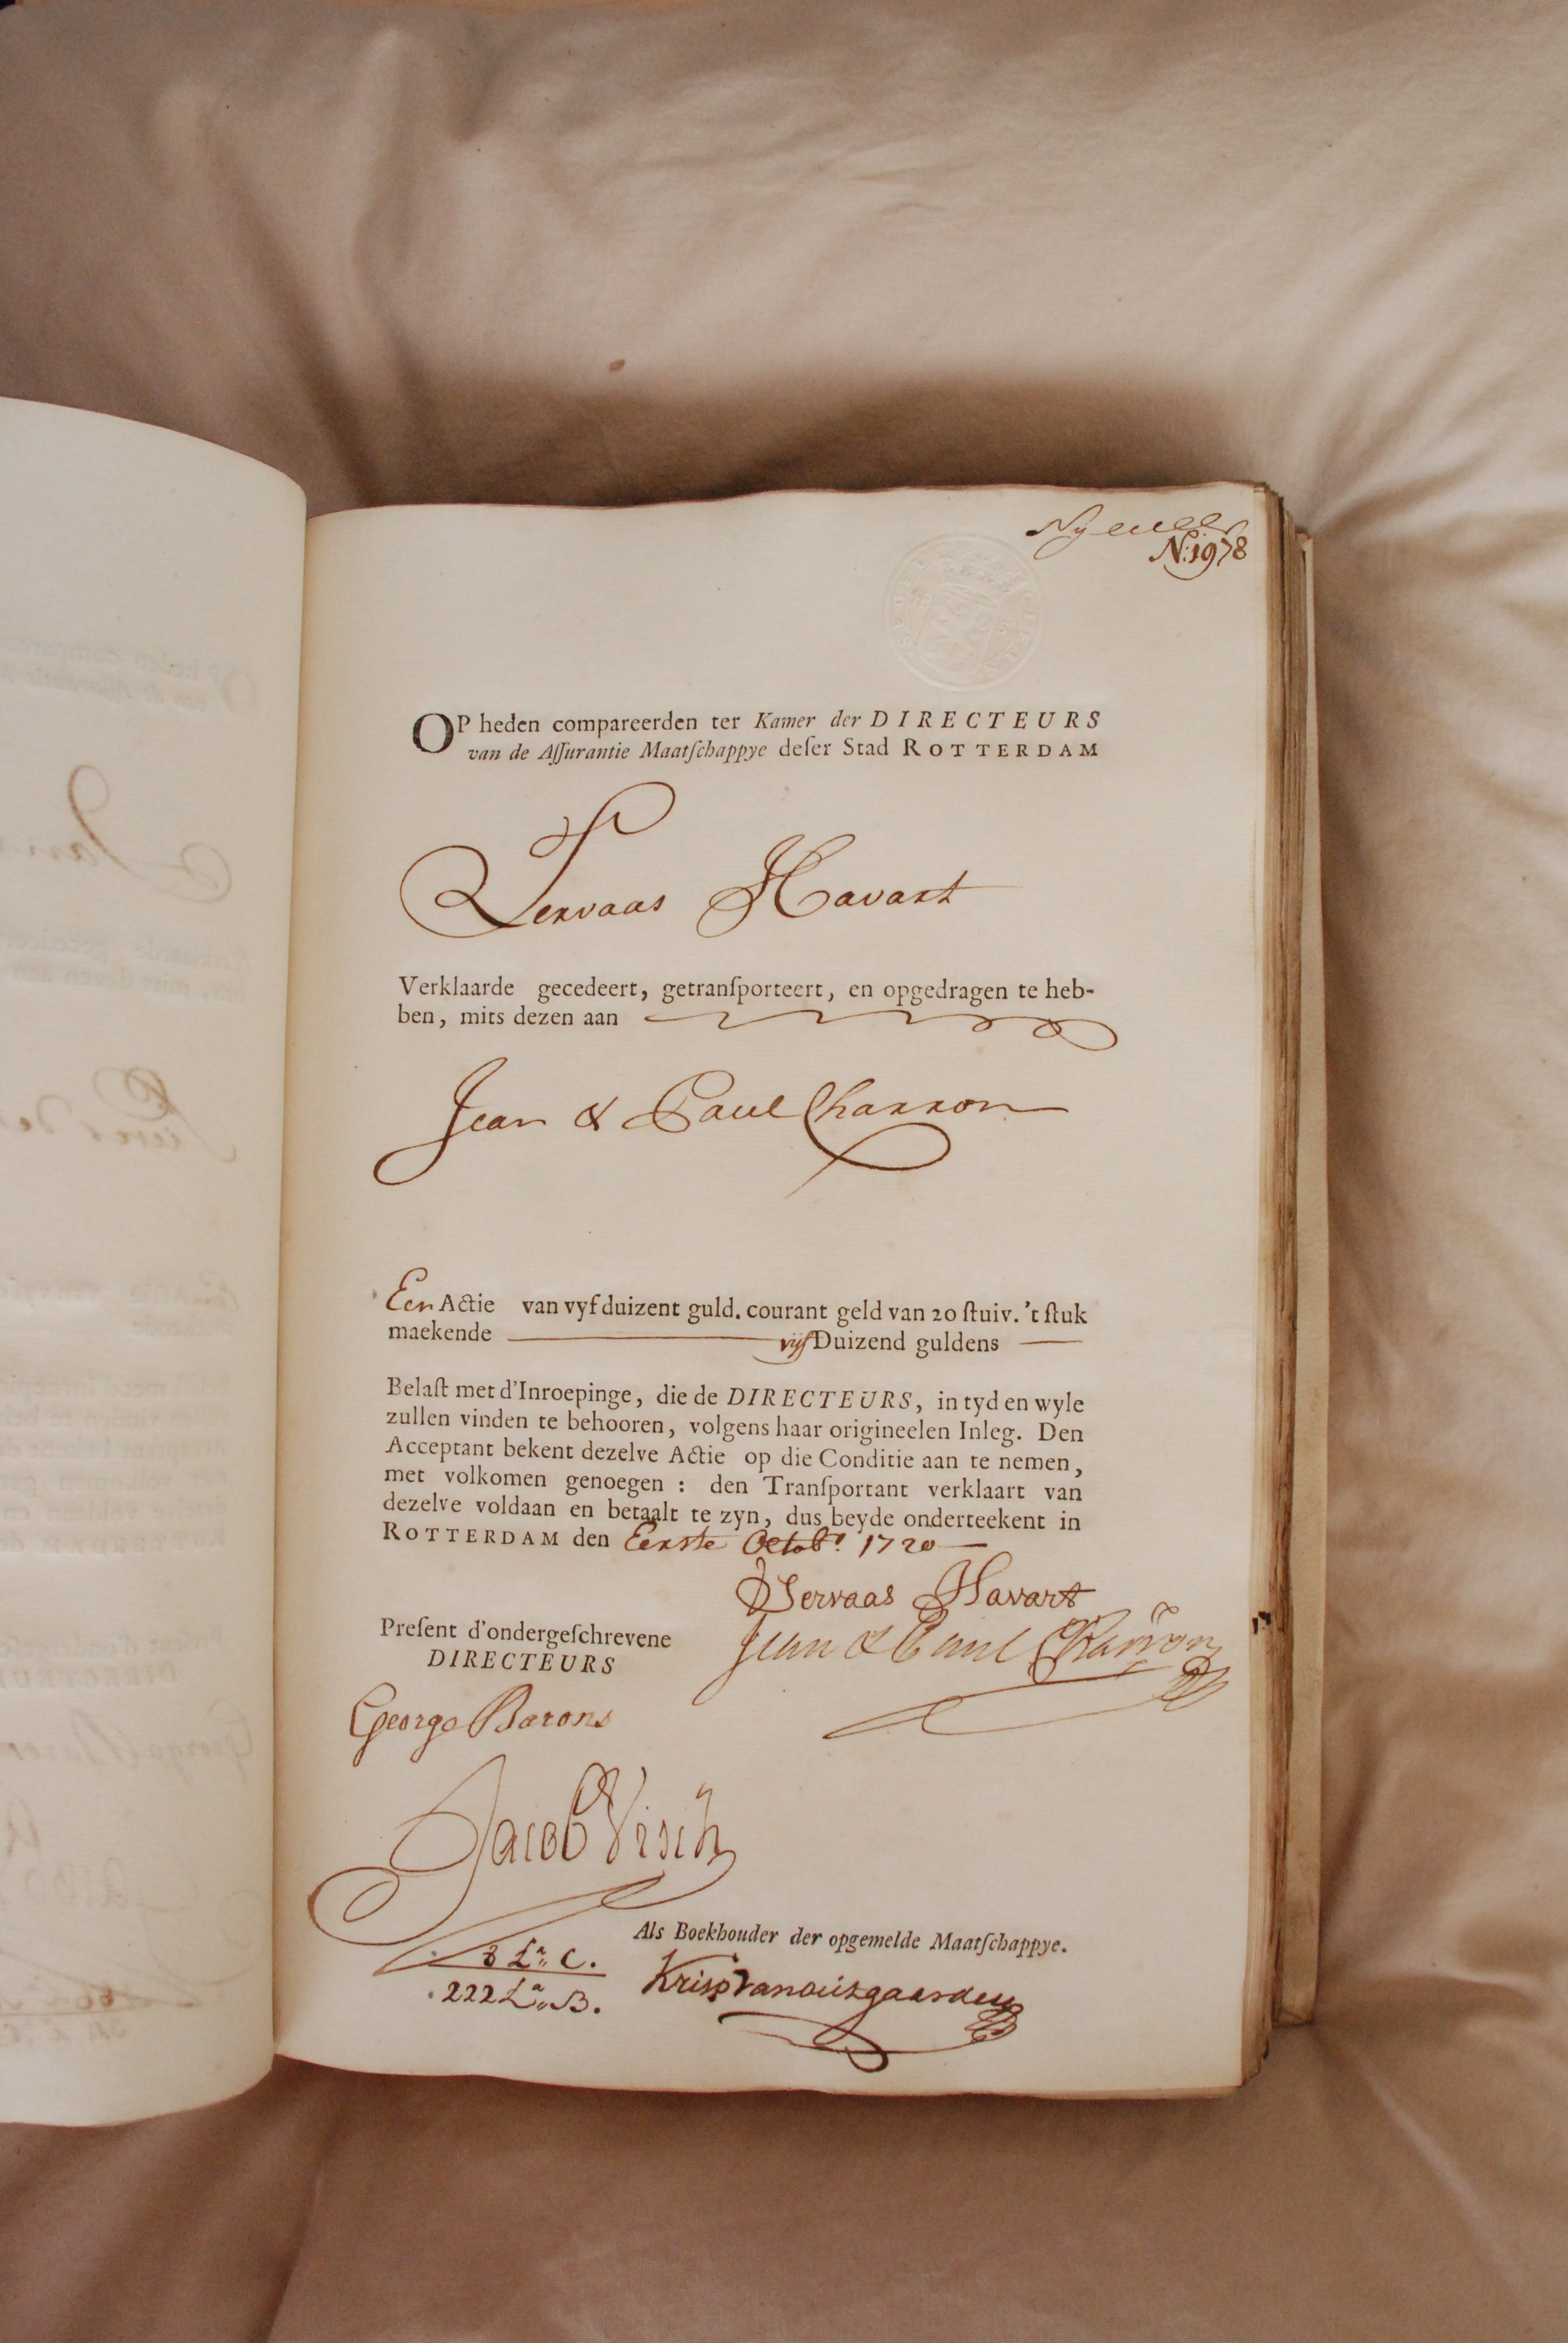 N:1978
OP heden compareerden ter Kamer der DIRECTEURS
van de Aſſurantie Maatſchappye deſer Stad ROTTERDAM
Servaas Havart
Verklaarde gecedeert, getranſporteert, en opgedragen te heb-
ben, mits dezen aan
Jean & Paul Charron
Een Actie van vyf duizent guld. courant geld van 20 ſtuiv. 't ſtuk
maekende vijf Duizend guldens
Belaſt met d'Inroepinge, die de DIRECTEURS, in tyd en wyle
zullen vinden te behooren, volgens haar origineelen Inleg. Den
Acceptant bekent dezelve Actie op die Conditie aan te nemen,
met volkomen genoegen : den Tranſportant verklaart van
dezelve voldaan en betaalt te zyn, dus beyde onderteekent in
ROTTERDAM den Eerste Octob: 1720
Servaas Havart
Jean & Paul Charron
Preſent d'ondergeſchrevene
DIRECTEURS
George Barons
Jacob Visch
Als Boekhouder der opgemelde Maatſchappye.
8 La C.
222 La B.